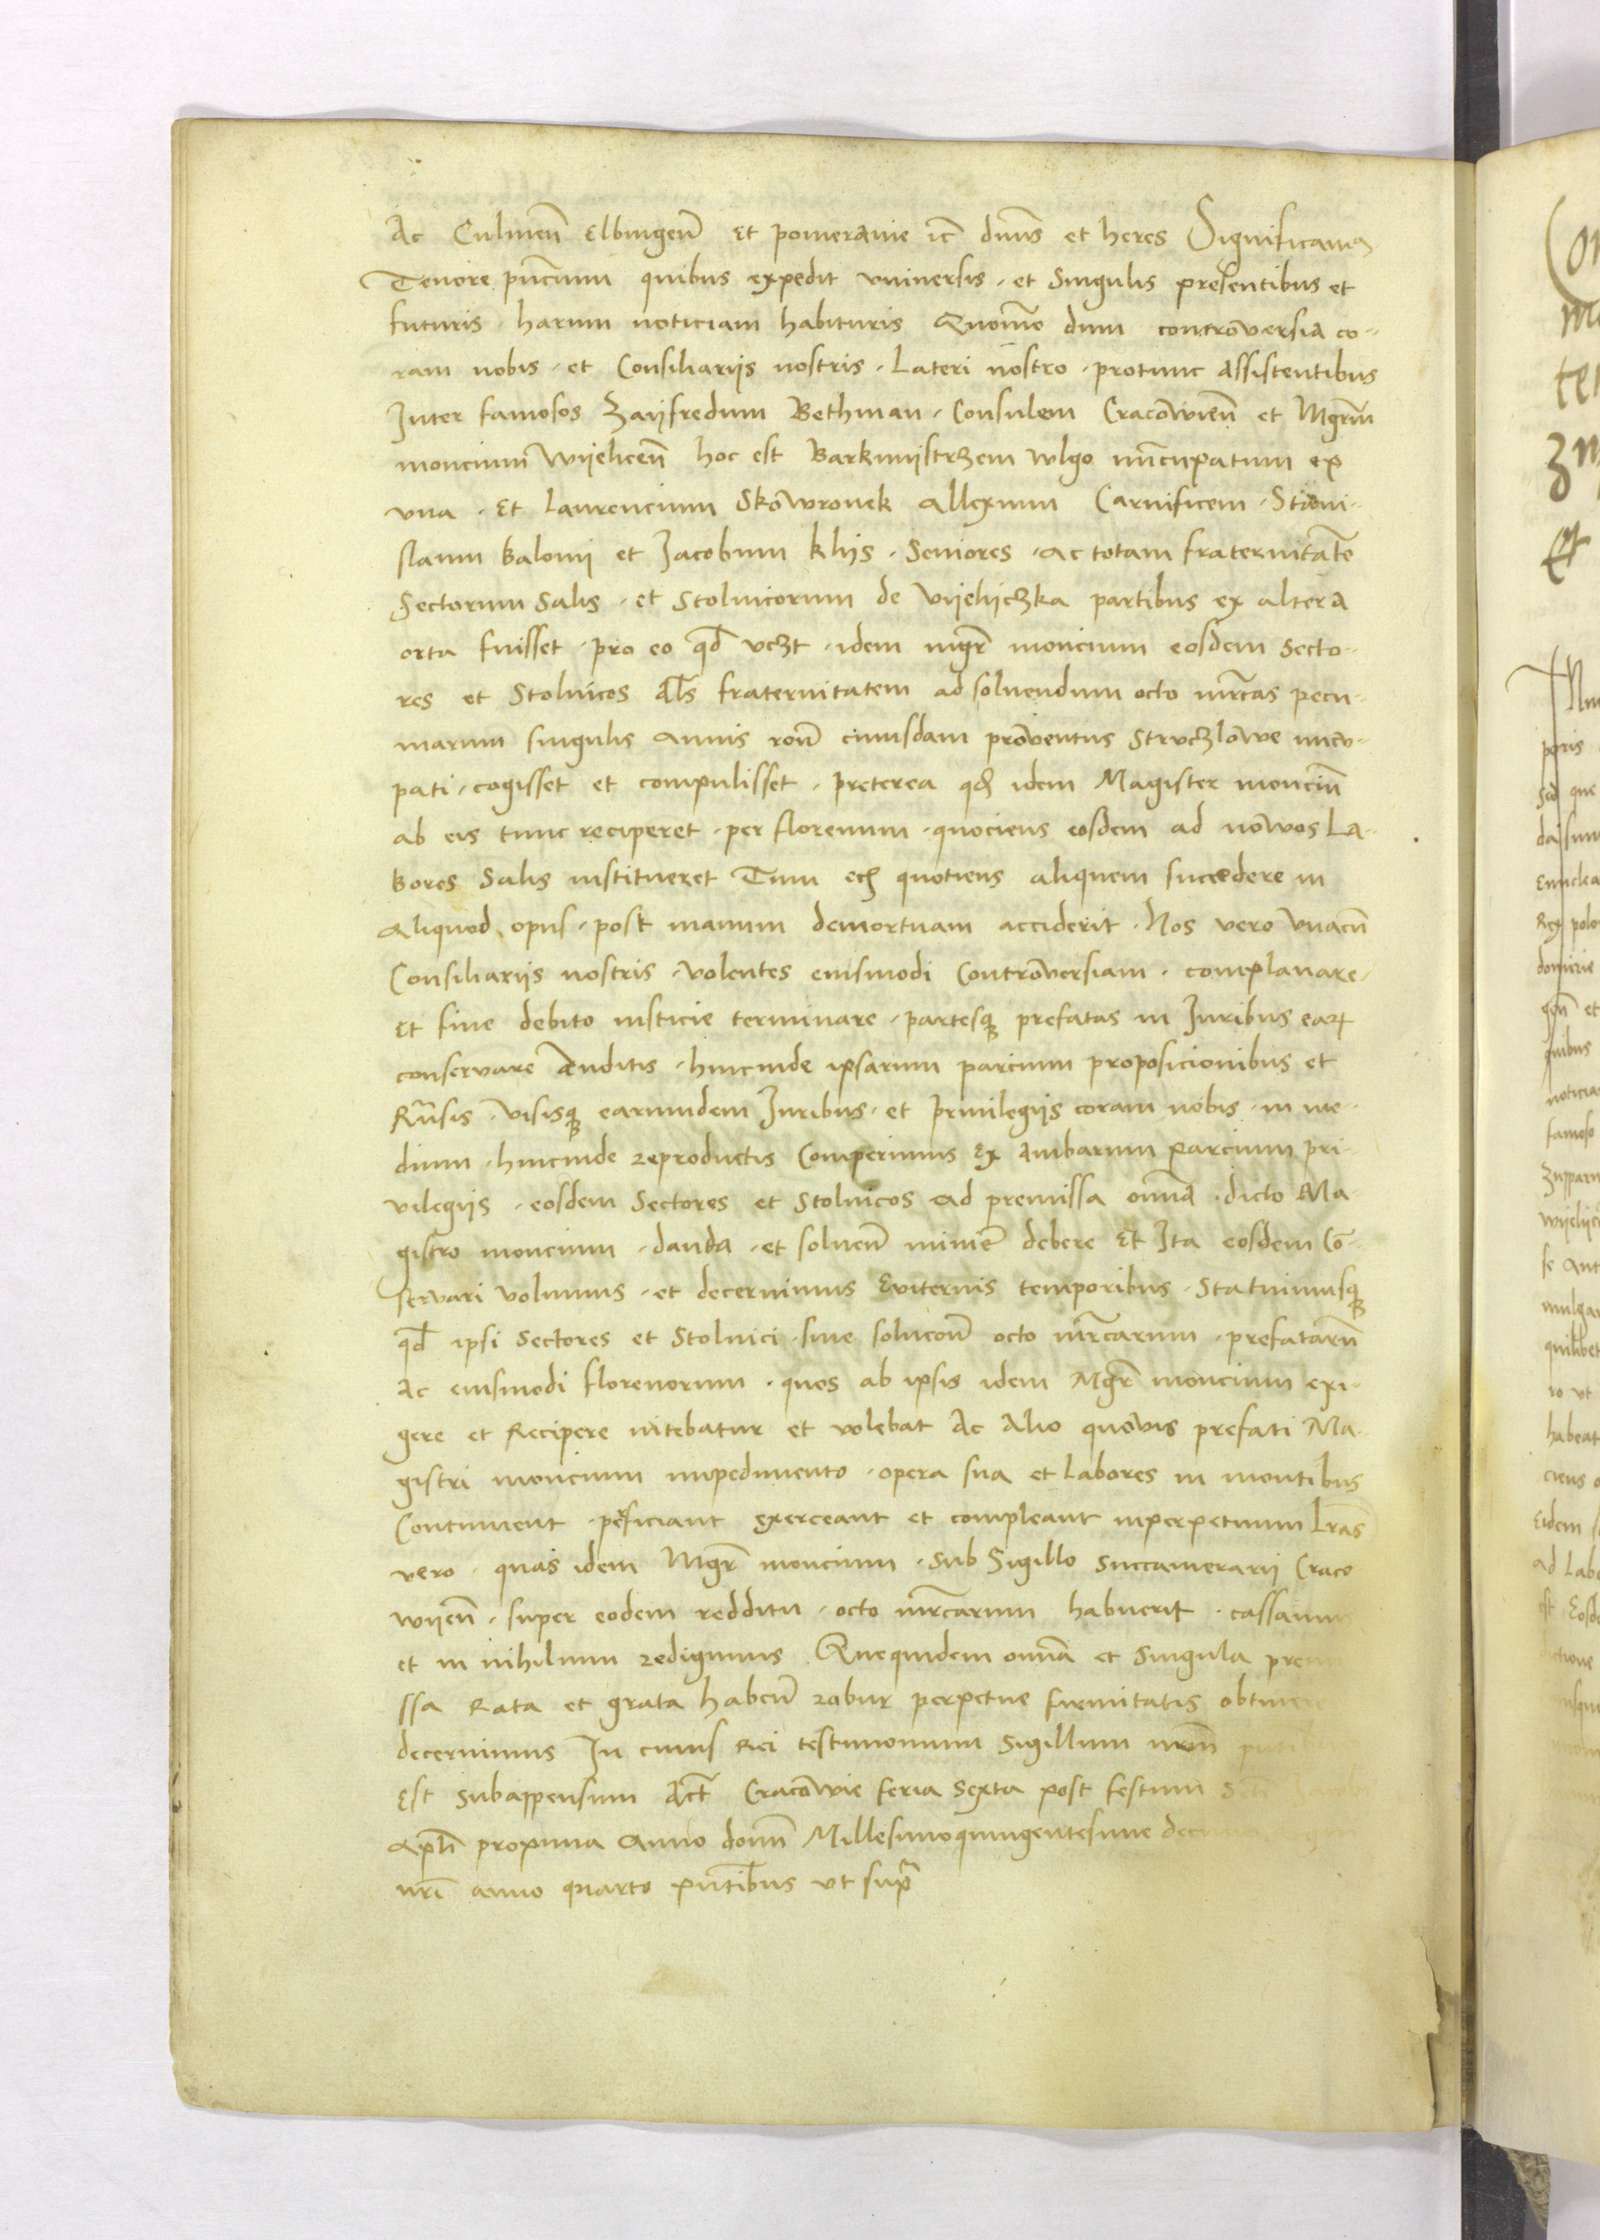 Ac Culmeñ Elbingeñ et pomeranie ꝛc̃ dñus et heres Significam9
Tenore pñcium quibus expedit vniuersis · et Singulis presentibus et
futuris · harum noticiam habituris Quomõ dum controwersia co-
ram nobis · et Consiliariis nostris · Lateri nostro · protunc Assistentibus
Inter famosos Zayfredum Bethman · Consulem Cracowieñ et Mgrm̃
moncium Wijeliceñ hoc est Barkmijstrzem wlgo nu̅cupatum ex
vna · Et Laurencium Skowronek Allexium Carnificem · Stani-
slaum balonij et Jacobum khijs · Seniores · ac totam fraternitatẽ
Sectorum Salis · et Stolnicorum de Vijelijczka partibus ex altera
orta fuisset · pro eo qd̃ vczt · idem mgr̃ moncium eosdem Secto-
res et Stolnicos Al̃s fraternitatem ad soluendum octo mr̃cas pecu-
niarum singulis Annis roñe cuiusdam prowentus Struczlowe nu̅cu-
pati · cogisset et compulisset · preterea qd̃ idem Magister monciu̅
ab eis tunc reciperet · per florenum · quociens eosdem ad nowos La-
bores Salis institueret Tum ecỉ quotiens aliquem succedere in
Aliquod opus · post manum demortuam acciderit · Nos vero Vnacu̅
Consiliariis nostris · volentes eiusmodi Controwersiam · complanare ·
Et fine debito iusticie terminare · partesqꝫ prefatas in Juribus eaꝝ
conservare Auditis · hincinde ipsarum parcium proposicionibus et
Rñsis · visisqꝫ earumdem Juribus · et Priuilegijs coram nobis · in me-
dium · hincinde reproductis Comperimus Ex Ambarum parcium pri-
vilegijs · eosdem Sectores et Stolnicos ad premissa om̃ia · dicto Ma-
gistro moncium · danda · et soluend̃ mimẽ debere Et Ita eosdem Co̅-
servari volumus · et decernimus Eviternis temporibus · Statuimusqꝫ
qd̃ ipsi Sectores et Stolnici · sine solucoñe octo mr̃carum · prefataru̅
Ac eiusmodi florenorum · quos ab ipsis idem Mgr̃ moncium exi-
gere et Recipere nitebatur et volebat Ac Alio quovis prefati Ma-
gistri moncium impedimento · opera sua et labores in montibus
Continuent · pẽficiant exerceant et compleant inperpetuum Lr̃as
vero · quas idem Mgr̃ moncium · Sub Sigillo Succamerarii Craco
wijeñ · super eodem redditu · octo mr̃carum habuerit · cassamus
et in nihilum redigimus Quequidem om̃ia et Singula premi
ssa Rata et grata habeñ robur perpetue firmitatis obtinere
decernimus In cuius Rei testimonium Sigillum nrm̃
Est Subappensum Act̃ Cracowie feria Sexta post festum Sc̃i
Apl̃i proxima Anno domı̃ Millesimoquingentesimo decimo
nri̅ anno quarto pñtibus vt supr̃